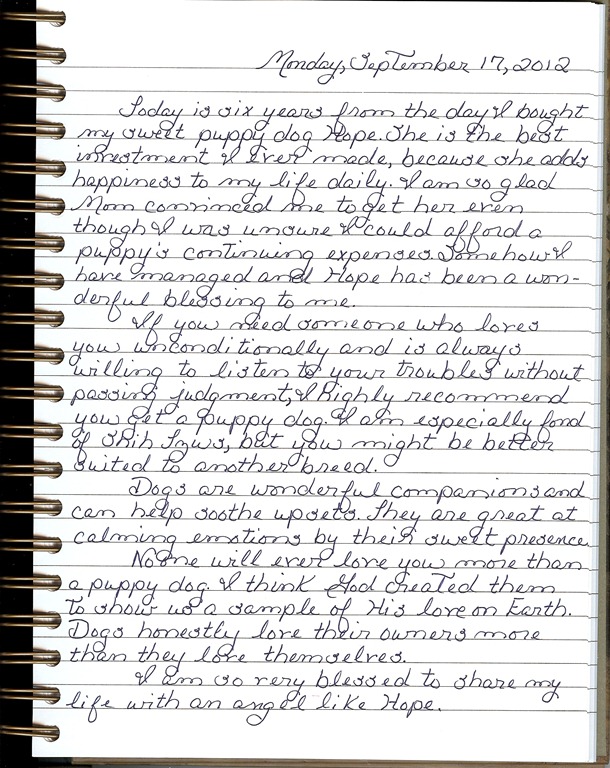 Monday, September 17, 2012
Today is six years from the day I bought
my sweet puppy dog Hope. She is the best
investment I ever made, because she adds
happiness to my life daily. I am so glad
Mom convinced me to get her even
though I was unsure I could afford a
puppy's continuing expenses. Somehow I
have managed and Hope has been a won-
derful blessing to me.
If you need someone who loves
you unconditionally and is always
willing to listen to your troubles without
passing judgment, I highly recommend
you get a puppy dog. I am especially fond
of Shih Tzus, but you might be better
suited to another breed.
Dogs are wonderful companions and
can help soothe upsets. They are great at
calming emotions by their sweet presence.
No one will ever love you more than
a puppy dog. I think God created them
to show us a sample of His love on Earth.
Dogs honestly love their owners more
than they love themselves.
I am so very blessed to share my
life with an angel like Hope.